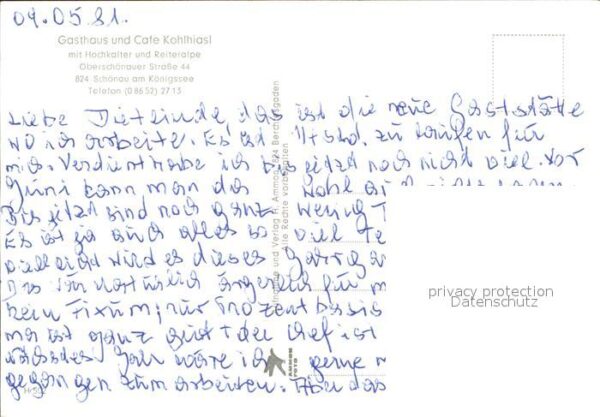 09.05.81.
Gasthaus und Cafe Kohlhiasl
mit Hochkalter und Reiteralpe
Oberschönauer Straße 44
824 Schönau am Königssee
Telefon (0 86 52) 27 13
Liebe Dietlinde, das ist die neue Gaststätte
wo ich arbeite. Es ist 1 Std. zu laufen für
mich. Verdient habe ich bis jetzt noch nicht viel. Vor
Juni kann man das wohl
Bis jetzt sind noch ganz wenig T
Es ist ja auch alles so viel te
vielleicht wird es dieses Jahr gar
Das ist natürlich ärgerlich für m
kein Fixum, nur Prozentbasis
ganz gut + der Chef ist
nächstes Jahr wäre ich gerne n
gegangen zum arbeiten. Aber das
Verlag H. Ammon, 824 Berchtesgaden
Alle Rechte vorbehalten
AMMON
FOTO
privacy protection
Datenschutz